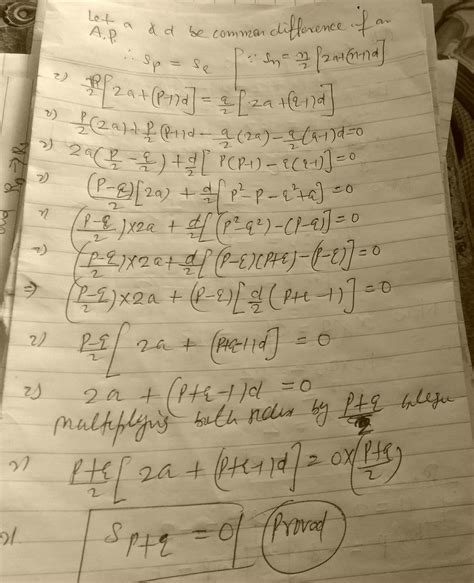 Let a & d be common difference of an
A.P.
∴ Sp = Sq [∵ Sn = n/2 [2a+(n-1)d]
⇒ p/2 [2a+(p-1)d] = q/2 [2a+(q-1)d]
⇒ p/2 (2a) + p/2 (p-1)d - q/2 (2a) - q/2 (q-1)d = 0
⇒ 2a(p/2 - q/2) + d/2 [p(p-1) - q(q-1)] = 0
⇒ (p-q/2)[2a) + d/2 [p²-p-q²+q] = 0
⇒ (p-q/2)×2a + d/2 [(p²-q²)-(p-q)] = 0
⇒ (p-q/2)×2a + d/2 [(p-q)(p+q)-(p-q)] = 0
⇒ (p-q/2)×2a + (p-q)[d/2 (p+q-1)] = 0
⇒ p-q/2 [2a + (p+q-1)d] = 0
⇒ 2a + (p+q-1)d = 0
multiplying both sides by p+q/2
⇒ p+q/2 [2a + (p+q-1)d] = 0×(p+q/2)
⇒ Sp+q = 0 (Proved)